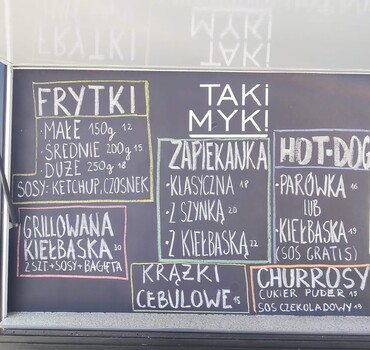 TAKi
MYK!
FRYTKI
• MAŁE 150g 12
• ŚREDNIE 200g 15
• DUŻE 250g 18
SOSY: KETCHUP, CZOSNEK
ZAPIEKANKA
• KLASYCZNA 18
• Z SZYNKĄ 20
• Z KIEŁBASKĄ 22
HOT-DOG
• PARÓWKA 16
LUB
• KIEŁBASKA 19
(SOS GRATIS)
• GRILLOWANA
KIEŁBASKA 30
2 SZT. + SOSY + BAGIETA
KRĄŻKI
CEBULOWE 15
CHURROSY
CUKIER PUDER 15
SOS CZEKOLADOWY 19